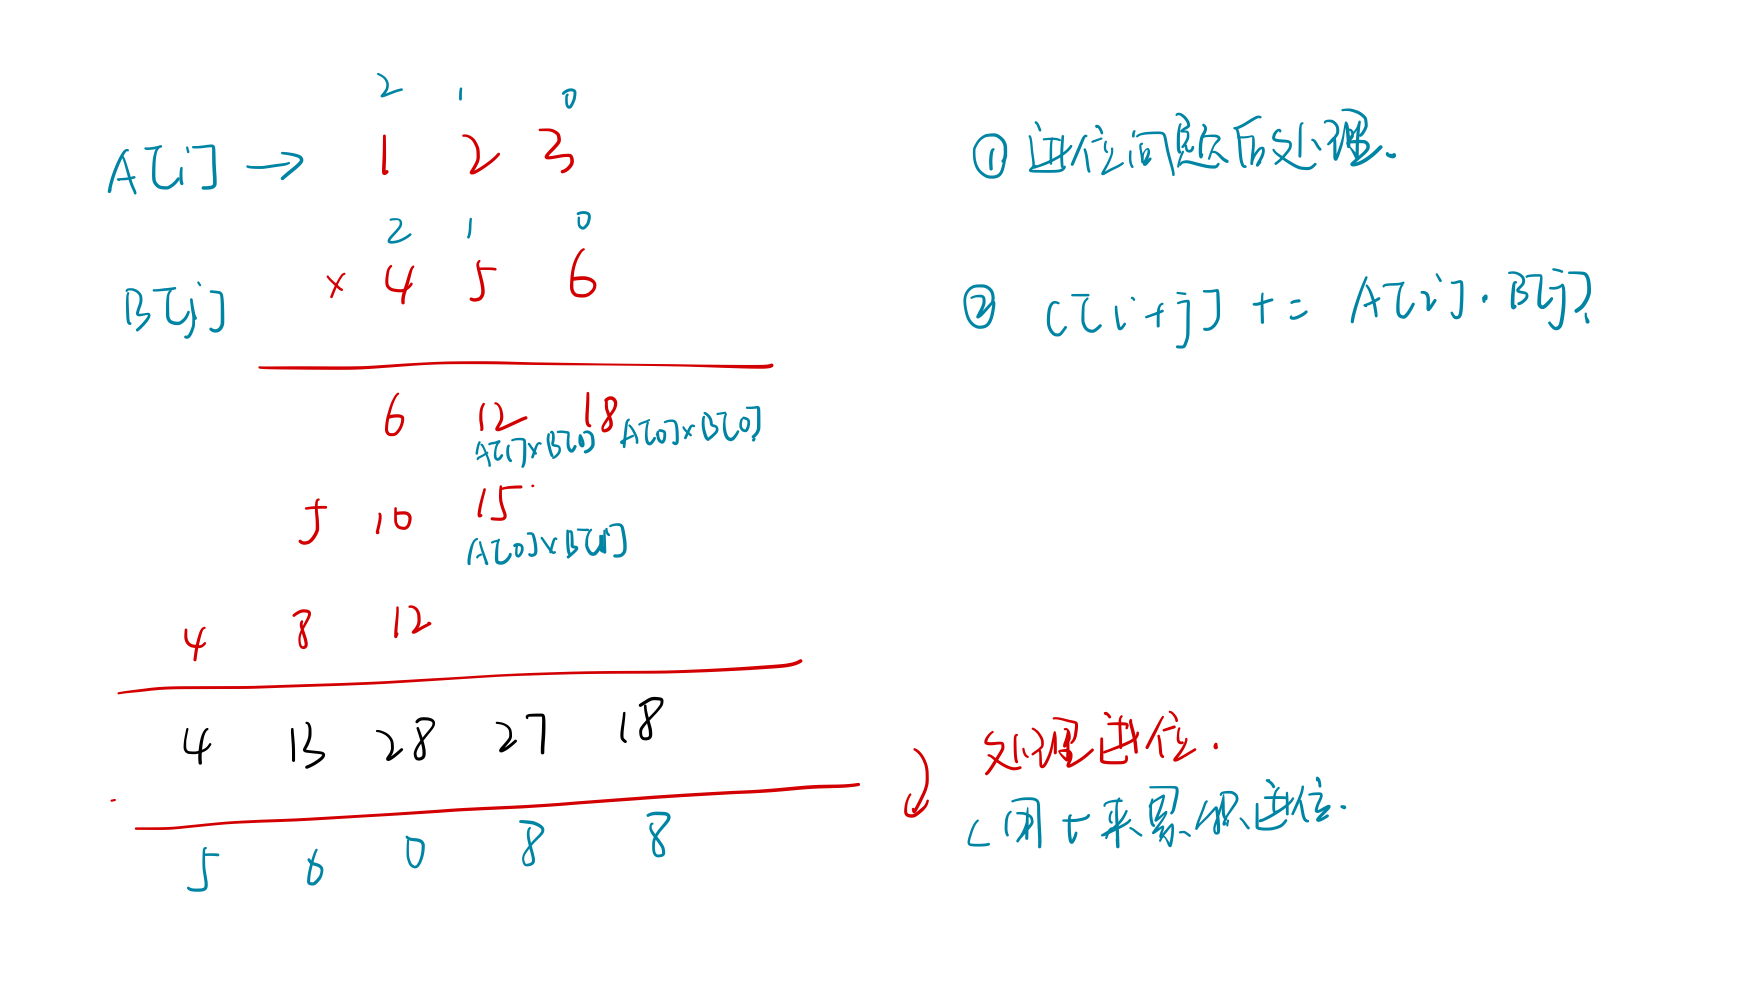 2 1 0
A[i] → 1 2 3
2 1 0
B[j] × 4 5 6
6 12 18
A[1]×B[0] A[0]×B[0]
5 10 15
A[0]×B[1]
4 8 12
4 13 28 27 18
5 6 0 8 8
① 进位问题后处理.
② C[i+j] += A[i]·B[j]
处理进位.
(用 t 来累积进位.